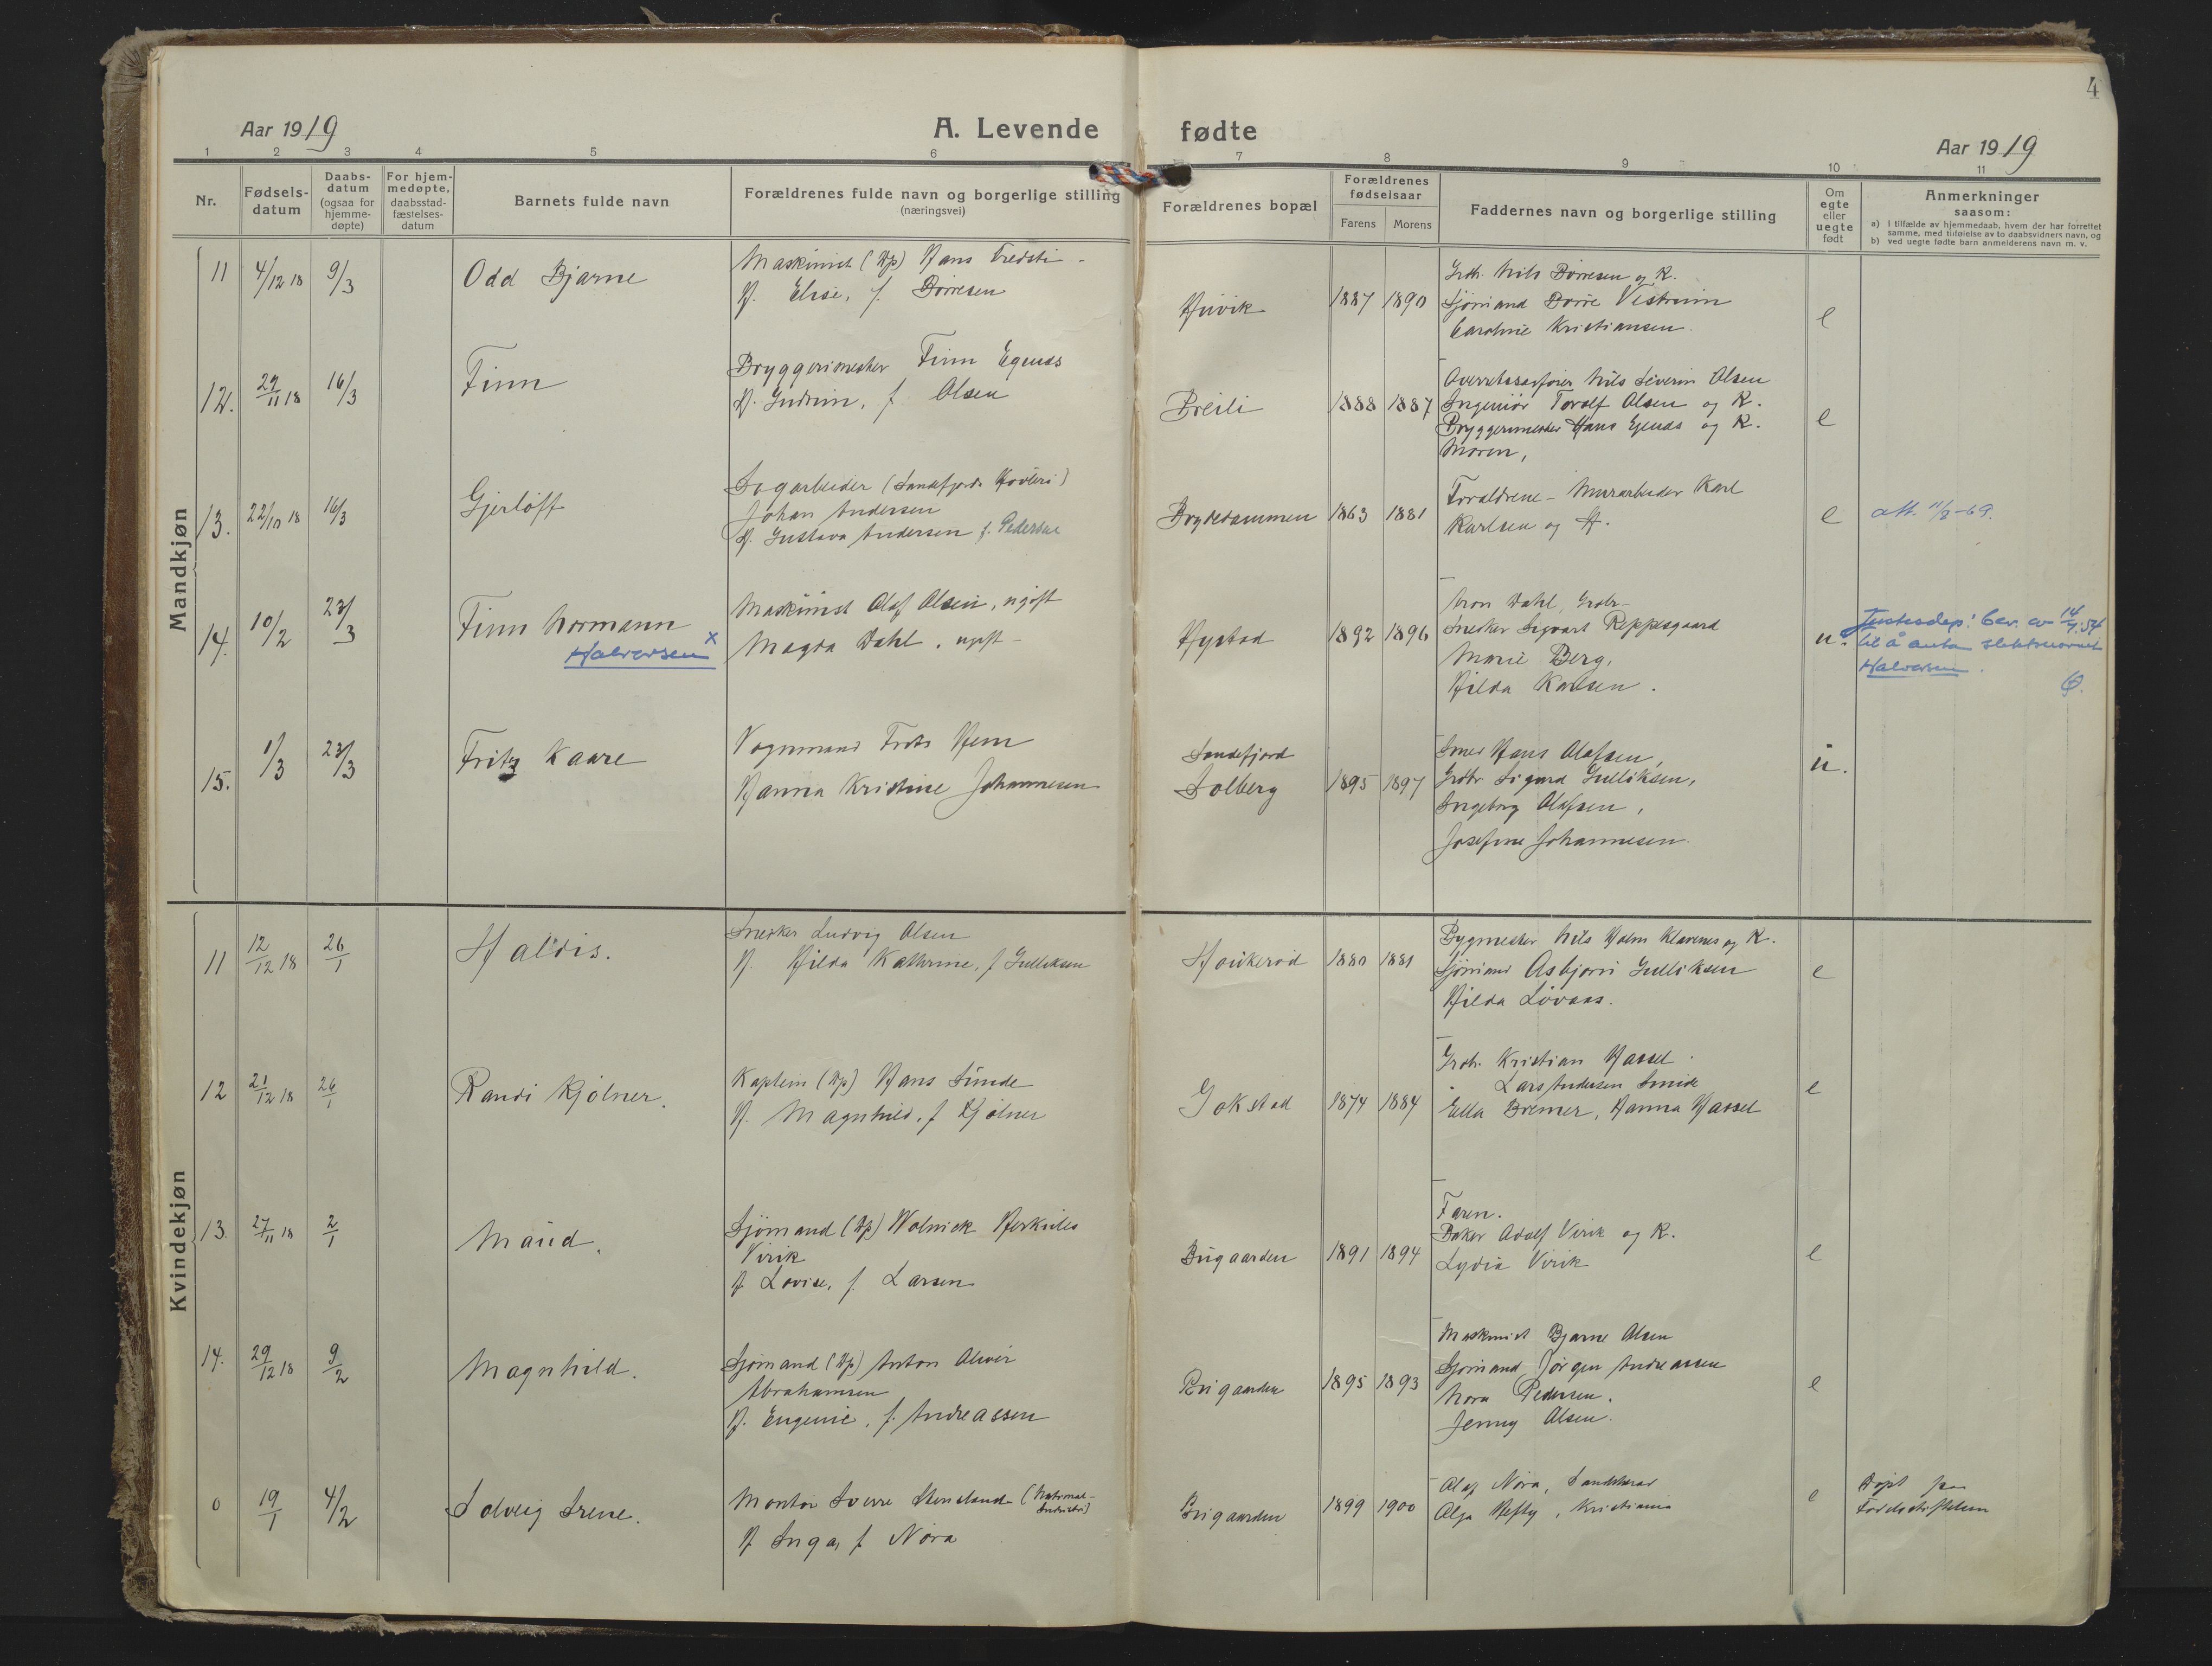 4
Aar 1919
A. Levende fødte
Aar 1919
1 2 3 4 5 6 7 8 9 10 11
Nr.
Fødselsdatum
Daabsdatum (ogsaa for hjemmedøpte)
For hjemmedøpte, daabsstadfæstelsesdatum
Barnets fulde navn
Forældrenes fulde navn og borgerlige stilling
(næringsvei)
Forældrenes bopæl
Forældrenes fødselsaar
Farens Morens
Faddernes navn og borgerlige stilling
Om egte eller uegte født
Anmerkninger
saasom:
a) i tilfælde av hjemmedaab, hvem der har forrettet
samme, med tilføielse av to daabsvidners navn, og
b) ved uegte fødte barn anmelderens navn m. v.
Mandkjøn
11 4/12 18 9/3 Odd Bjarne
Maskinist (Hp) Hans
H. Elise, f. Börresen
1887 1890
Grdbr. Nils Börresen og K.
Sjömand Börre Vestrum
Caroline Kristiansen.
e
12. 29/11 18 16/3 Finn
Bryggerimester Finn Egenæs
H. Gudrun, f. Olsen
Breili 1888 1887
Overretssagförer Nils Severin Olsen
Ingeniör Torolf Olsen og K.
Bryggerimester Hans Egenæs og K.
Moren,
e
13. 22/10 18 16/3 Gjerlöff
Sagarbeider (Sandefjords Hövleri)
Johan Andersen
H. Gustava Andersen f. Pedersen
Brydedammen 1863 1881
Forældrene - Murarbeider Karl
Karlsen og H.
e
att. 11/8-69.
14. 10/2 23/3 Finn Normann
Halvorsen x
Maskinist Olaf Olsen, ugift
Magda Dahl, ugift -
Hystad 1892 1896
Aron Dahl, Grdbr-
Snekker Sigvart Reppesgaard
Marie Berg,
Hilda Karlsen.
u.
Justisdep! bev. av 14/7.54
til å anta slektsnavnet
Halvorsen.
15. 1/3 23/3 Fritz Kaare
Vognmand Frits Hem
Hanna Kristine Johannesen
Sandefjord
Solberg 1895 1897
Smed Hans Olafsen,
Grdbr Sigurd Gulliksen,
Ingeborg Olafsen,
Josefine Johannesen.
u.
Kvindekjøn
11 12/12 18 26/1 Haldis.
Snekker Ludvig Olsen
H. Hilda Kathrine, f Gulliksen
Haukeröd 1880 1881
Bygmester Nils Holm Klavenes og K.
Sjömand Asbjörn Gulliksen
Hilda Lövaas.
e
12 21/12 18 26/1 Randi Kjölner.
Kaptein (Hp) Hans Sunde
H. Magnhild, f Kjölner
Gokstad 1874 1884
Grdbr. Kristian Hassel
Lars Andersen Sunde
Ella Bremer, Hanna Hassel
e
13. 27/11 18 2/1 Maud.
Sjömand (Hp) Herkules
Virik
H Lovise, f. Larsen
Bugaarden 1891 1894
Faren.
Baker Adolf Virik og K.
Lydia Virik
e
14. 29/12 18 9/2 Magnhild.
Sjömand (Hp) Anton Oliver
Abrahamsen
H. Eugenie, f. Andreassen
Bugaarden 1895 1893
Maskinist Bjarne Olsen
Sjömand Jörgen Andreassen
Nora Pedersen.
Jenny Olsen.
e
0 19/1 4/2 Solveig Irene.
Montör Sverre Stensland (National-
Industri)
H Inga, f Nöra
Bugaarden 1899 1900
Olaf Nöra, Sandeherad
Olga Hefty, Kristiania
e
Döpt paa
Födselsstiftelsen